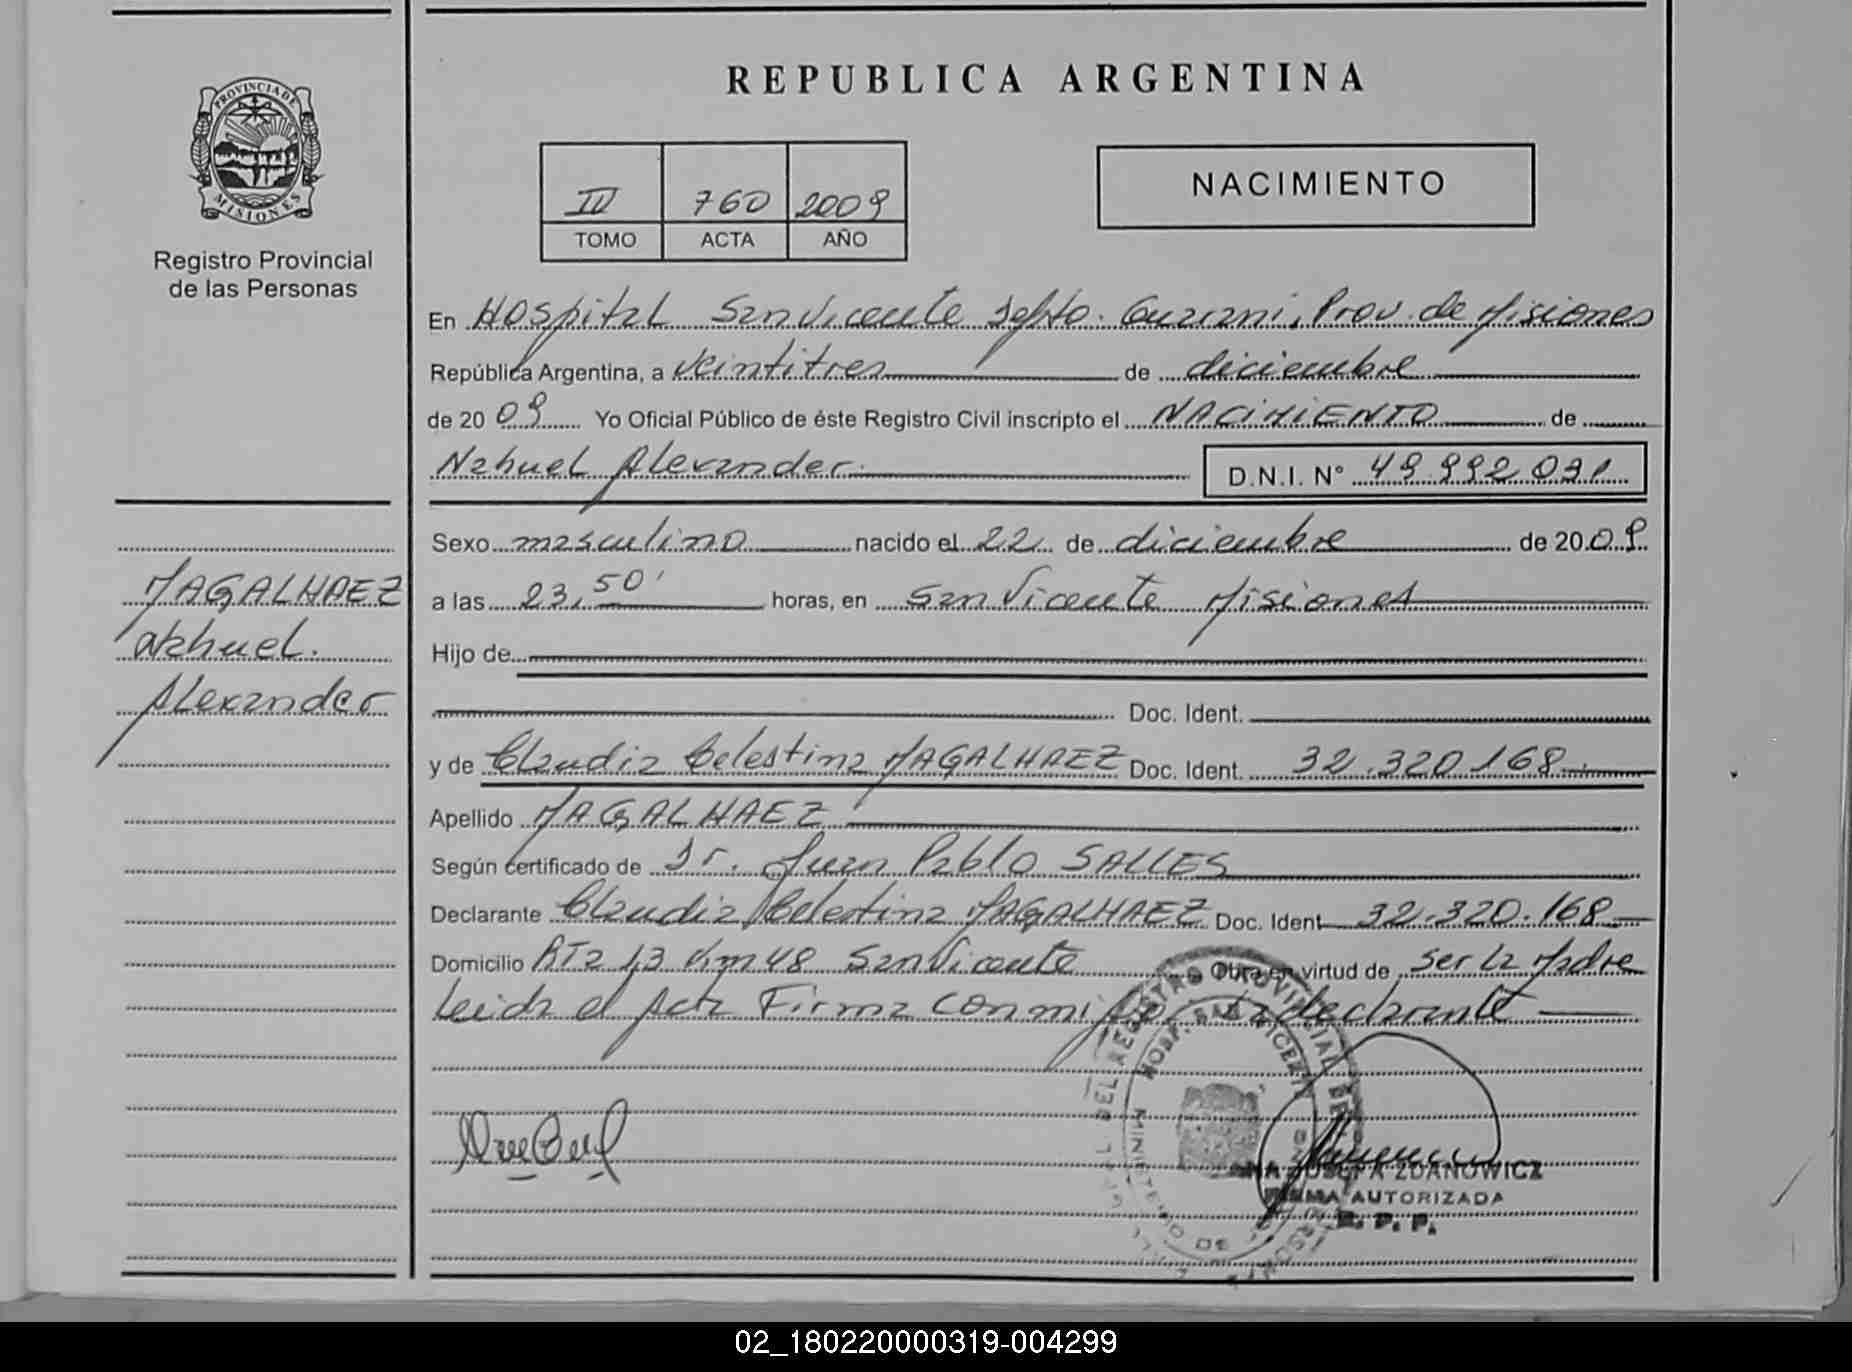 REPUBLICA ARGENTINA
PROVINCIA DE
MISIONES
Registro Provincial
de las Personas
III 760 2009
TOMO ACTA AÑO
NACIMIENTO
En Hospital San Vicente Depto. Guarani, Prov. de Misiones
República Argentina, a veintitres de diciembre
de 2009 Yo Oficial Público de éste Registro Civil inscripto el NACIMIENTO de
Nahuel Alexander D.N.I. N° 49.992.031
Sexo masculino nacido el 22 de diciembre de 2009
a las 23,50' horas, en San Vicente Misiones
Hijo de
Doc. Ident.
y de Claudia Celestina MAGALHAEZ Doc. Ident. 32.320.168
Apellido MAGALHAEZ
Según certificado de Dr. Juan Pablo SALLES
Declarante Claudia Celestina MAGALHAEZ Doc. Ident 32.320.168
Domicilio RTa 13 Km 48 San Vicente Obra en virtud de ser la Madre
leida el Acta Firma conmigo la declarante
MAGALHAEZ
Nahuel.
Alexander
ANA JOSEFA ZDANOWICZ
FIRMA AUTORIZADA
R. P. P.
02_180220000319-004299